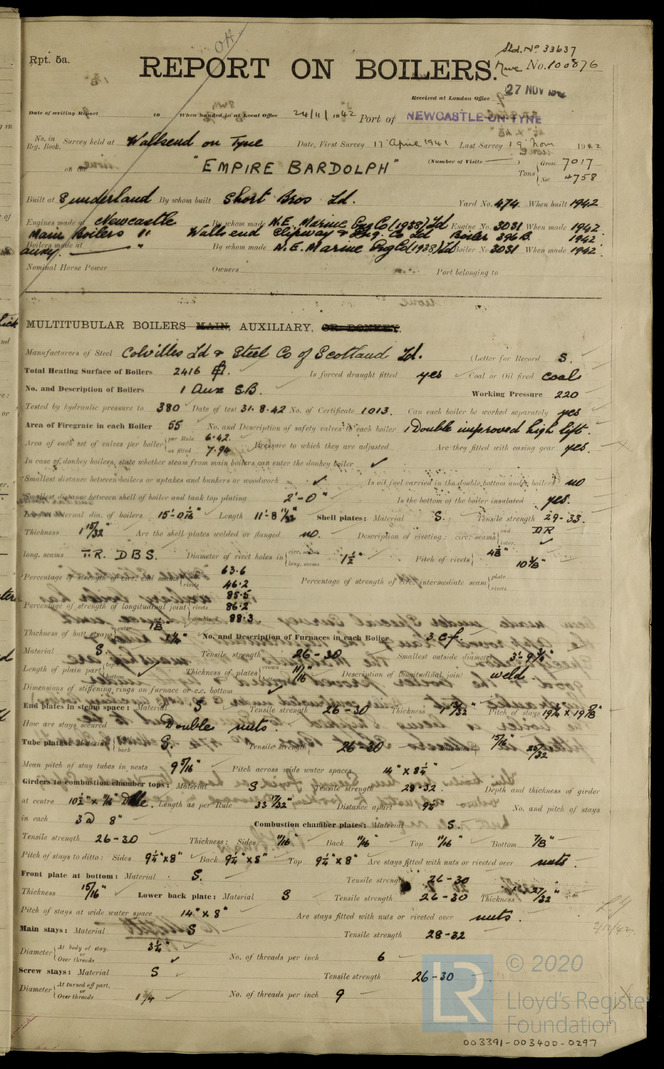 Sld. No 33637
Rpt. 5a.
REPORT ON BOILERS.
No. 100876
Received at London Office 27 NOV
Date of writing Report 19 When handed in at Local Office 24/11/1942 Port of NEWCASTLE-ON-TYNE
No. in Reg. Book. Survey held at Wallsend on Tyne Date, First Survey 17 April 1941 Last Survey 19 Nov 1942
on the "EMPIRE BARDOLPH" (Number of Visits ) Tons Gross 7017 Net 4758
Built at Sunderland By whom built Short Bros Ld. Yard No. 474 When built 1942
Engines made at Newcastle By whom made N.E. Marine Eng Co (1938) Ld Engine No. 3031 When made 1942
Main Boilers " Wallsend Slipway & Eng. Co Ld Boiler 396B 1942
Boilers made at " By whom made N.E. Marine Eng Co (1938) Ld Boiler No. 3031 When made 1942
Nominal Horse Power Owners Port belonging to
MULTITUBULAR BOILERS MAIN, AUXILIARY, OR DONKEY.
Manufacturers of Steel Colvilles Ld & Steel Co of Scotland Ld. (Letter for Record S.
Total Heating Surface of Boilers 2416 Is forced draught fitted yes Coal or Oil fired coal
No. and Description of Boilers 1 Aux S.B. Working Pressure 220
Tested by hydraulic pressure to 380 Date of test 31.8.42 No. of Certificate 1013. Can each boiler be worked separately yes
Area of Firegrate in each Boiler 55 No. and Description of safety valves to each boiler 1 Double improved high lift
Area of each set of valves per boiler per Rule 6.42 as fitted 7.94 Pressure to which they are adjusted Are they fitted with easing gear yes.
In case of donkey boilers, state whether steam from main boilers can enter the donkey boiler
Smallest distance between boilers or uptakes and bunkers or woodwork Is oil fuel carried in the double bottom under boilers no
Smallest distance between shell of boiler and tank top plating 2'-0" Is the bottom of the boiler insulated yes.
Largest internal dia. of boilers Length Shell plates: Material S. Tensile strength 29-33.
Thickness 1 15/32" Are the shell plates welded or flanged no. Description of riveting: circ. seams DR
long. seams T.R. DBS. Diameter of rivet holes in 1½" Pitch of rivets
Percentage of strength of circ. 63.6 46.2 Percentage of strength of intermediate seam plate rivets
Percentage of strength of longitudinal joint 85.5 86.2 88.3
Thickness of butt straps No. and Description of Furnaces in each Boiler 3 c.f.
Material S Tensile strength 26-30 Smallest outside diameter
Length of plain part Thickness of plates Description of longitudinal joint weld
Dimensions of stiffening rings on furnace or c.c. bottom
End plates in steam space: Material S Tensile strength 26-30 Thickness Pitch of stays
How are stays secured Double nuts.
Tube plates: Material S. Tensile strength 26-30
Mean pitch of stay tubes in nests Pitch across wide water spaces 14" x 8¼"
Girders to combustion chamber tops: Material S Tensile strength 28-32 Depth and thickness of girder
at centre Length as per Rule 33 17/32" Distance apart No. and pitch of stays
in each 3 @ 8" Combustion chamber plates: Material S.
Tensile strength 26-30 Thickness: Sides 11/16" Back 11/16" Top 11/16" Bottom 7/8"
Pitch of stays to ditto: Sides 9¼" x 8" Back 9¼" x 8" Top 9¼" x 8" Are stays fitted with nuts or riveted over nuts.
Front plate at bottom: Material S. Tensile strength 26-30
Thickness 15/16" Lower back plate: Material S Tensile strength 26-30 Thickness 27/32"
Pitch of stays at wide water space 14" x 8" Are stays fitted with nuts or riveted over nuts.
Main stays: Material S Tensile strength 28-32
Diameter At body of stay, or Over threads 3¼" No. of threads per inch 6
Screw stays: Material S Tensile strength 26-30
Diameter At turned off part, or Over threads 1¾" No. of threads per inch 9
© 2020
Lloyd's Register
Foundation
003391-003400-0297